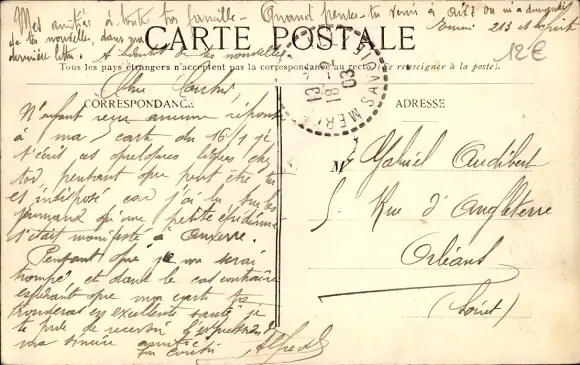 Mes amitiés à toute ta famille - Quand penses-tu venir à
de tes nouvelles, dans ma
dernière lettre. Attendant de tes nouvelles
12€
CARTE POSTALE
Tous les pays étrangers n'acceptent pas la correspondance au recto (se renseigner à la poste).
CORRESPONDANCE
ADRESSE
SAVOIE
03
Cher
N'ayant reçu aucune réponse
à ma carte du 16/1 je
t'écris ces quelques lignes chez
toi, pensant que peut être tu
es indisposé, car j'ai lu sur les
journaux qu'une petite épidémie
s'était manifesté à Auxerre.
Pensant que je me serai
trompé et dans le cas contraire
espérant que ma carte te
trouvera en excellente santé je
te prie de recevoir l'expression de
ma sincère amitié
Ton cousin
Alfred
M Gabriel Audibert
5 Rue d'Angleterre
Orléans
(Loiret)